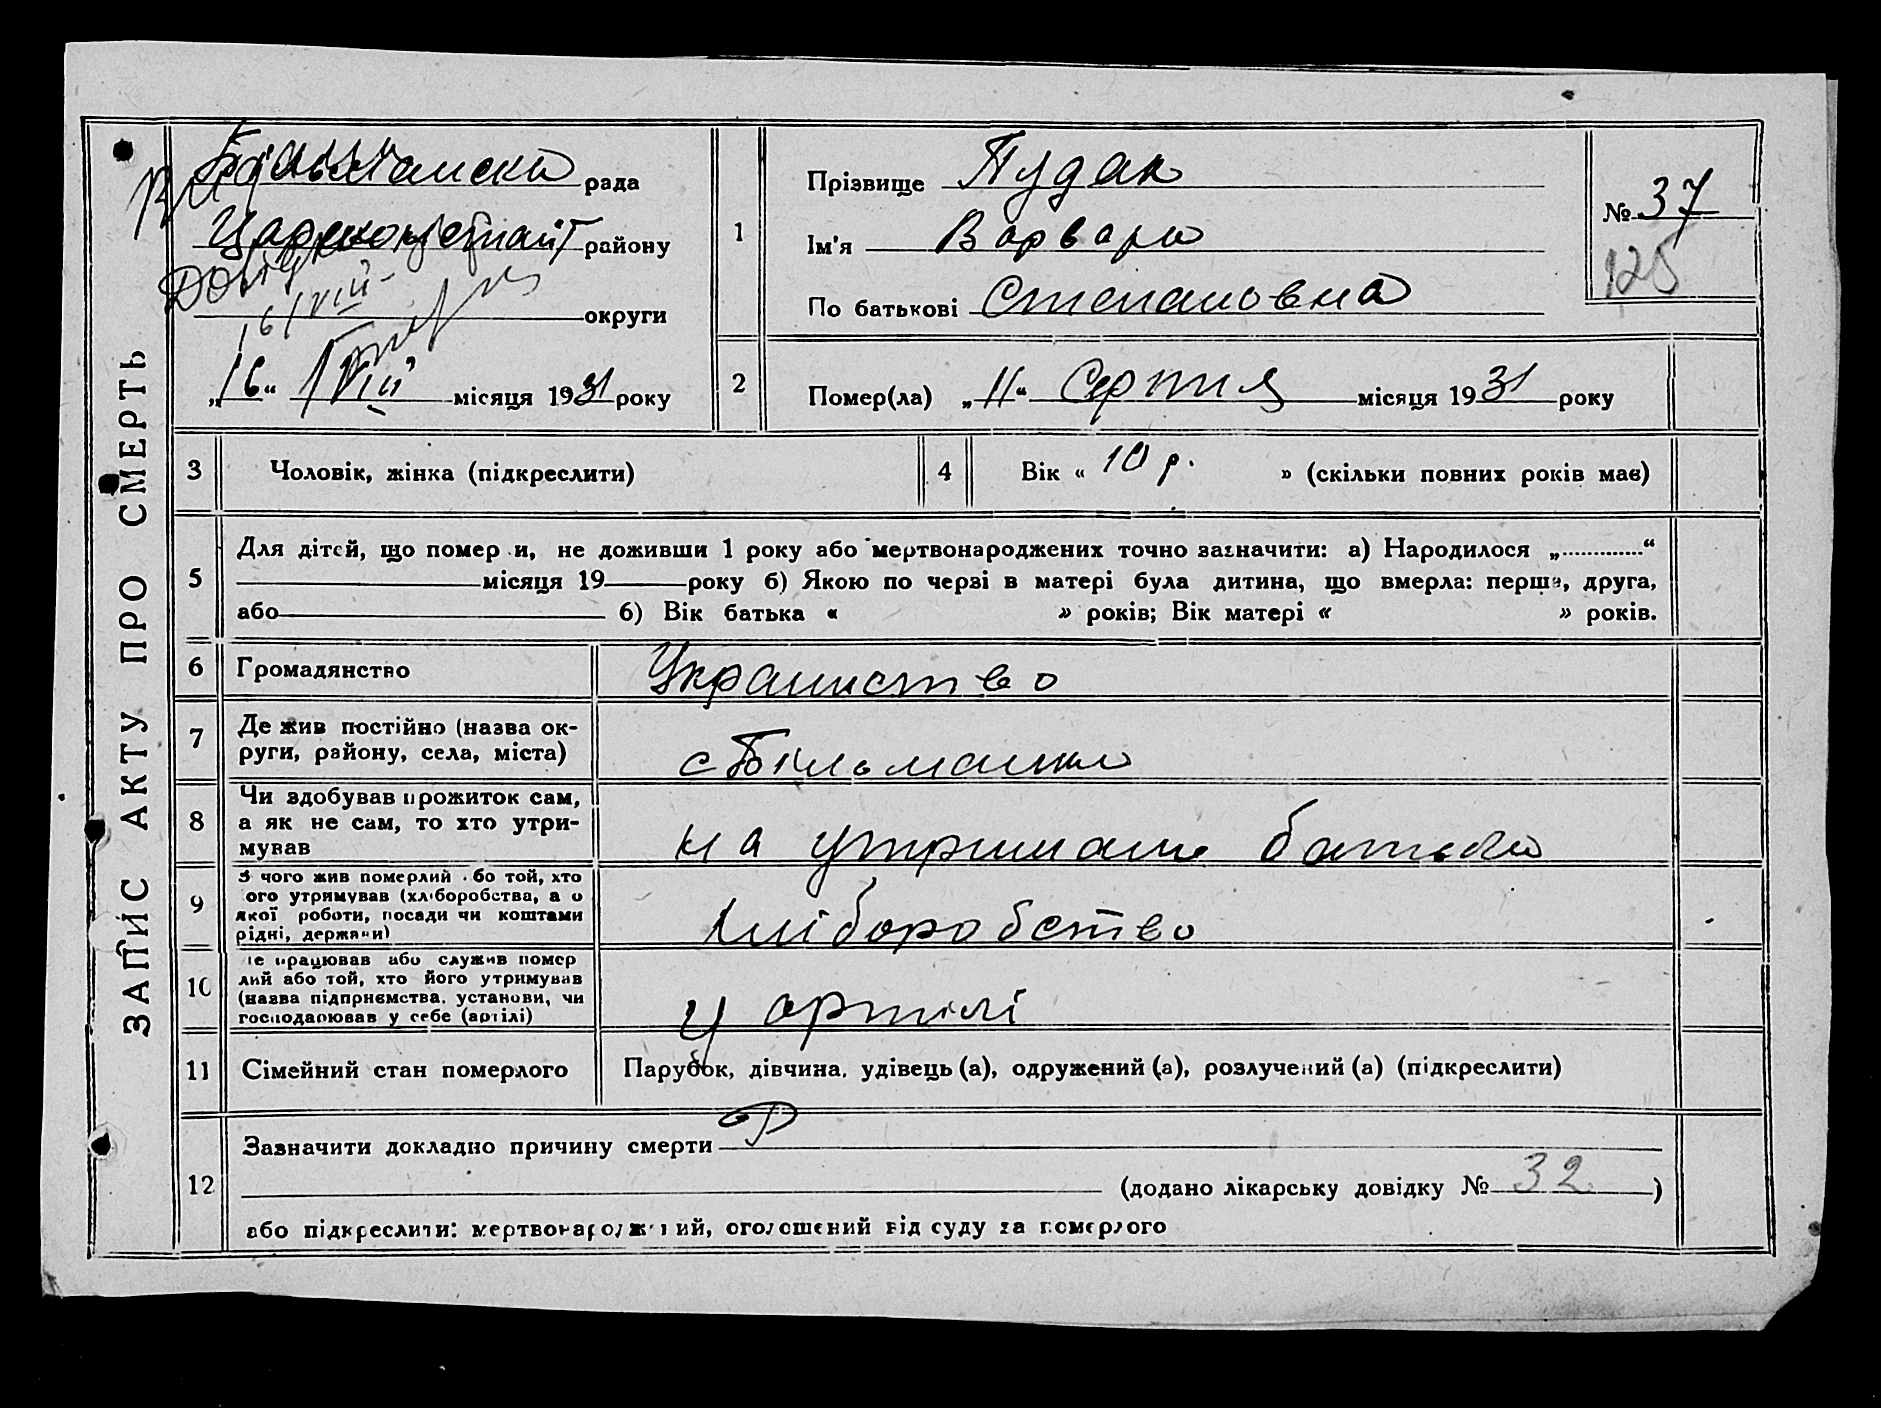 ЗАПИС АКТУ ПРО СМЕРТЬ
Більманска рада
району
округи
„16“ VIII місяця 1931 року
1
Прізвище Пудак
Ім'я Варвара
По батькові Степановна
№ 37
125
2
Помер(ла) „11“ Серпня місяця 1931 року
3 Чоловік, жінка (підкреслити)
4 Вік « 10 р. » (скільки повних років має)
5 Для дітей, що помер и, не доживши 1 року або мертвонароджених точно зазначити: а) Народилося „.............“
місяця 19 року б) Якою по черзі в матері була дитина, що вмерла: перша, друга,
або б) Вік батька « » років; Вік матері « » років.
6 Громадянство Украинство
7 Де жив постійно (назва ок-
руги, району, села, міста) с Більманка
8 Чи здобував прожиток сам,
а як не сам, то хто утри-
мував на утримани батька
9 З чого жив померлий або той, хто
ого утримував (хліборобства, а о
якої роботи, посади чи коштами
рідні, держави) хліборобство
10 е працював або служив помер
лий або той, хто його утримував
(назва підприємства, установи, чи
господарював у себе (артілі) у артілі
11 Сімейний стан померлого Парубок, дівчина, удівець (а), одружений (а), розлучений (а) (підкреслити)
12 Зазначити докладно причину смерти
(додано лікарську довідку № 32 )
або підкреслити: мертвонароджений, оголошений від суду за померлого